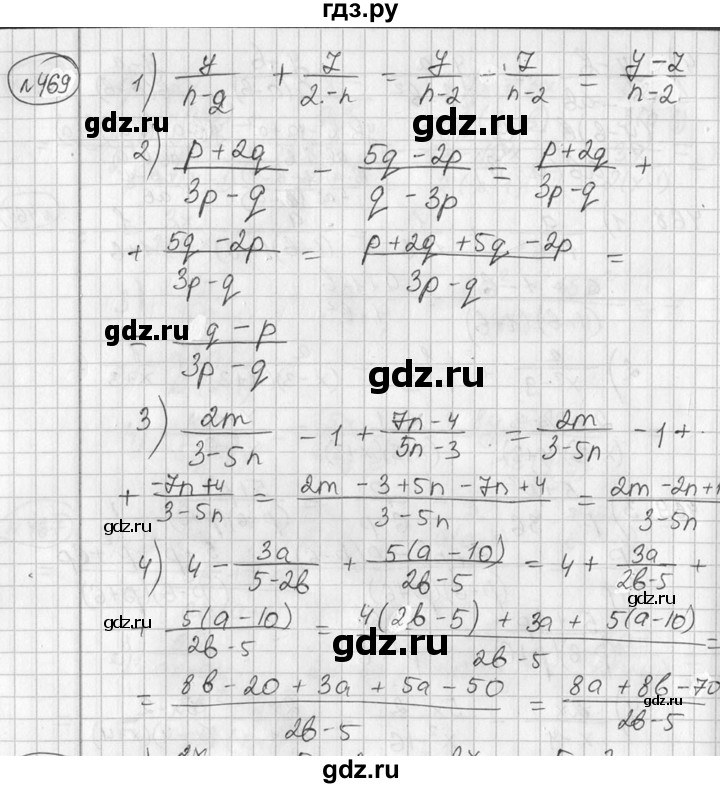 гдз.ру
№469 1) y/(n-2) + 7/(2-n) = y/(n-2) - 7/(n-2) = (y-7)/(n-2)
gdz.ru gdz.ru
2) (p+2q)/(3p-q) - (5q-2p)/(q-3p) = (p+2q)/(3p-q) +
+ (5q-2p)/(3p-q) = (p+2q+5q-2p)/(3p-q) =
gdz.ru gdz.ru
= (q-p)/(3p-q)
gdz.ru
3) 2m/(3-5n) - 1 + (7n-4)/(5n-3) = 2m/(3-5n) - 1 +
+ (-7n+4)/(3-5n) = (2m-3+5n-7n+4)/(3-5n) = (2m-2n+1)/(3-5n)
gdz.ru gdz.ru
4) 4 - 3a/(5-2b) + 5(a-10)/(2b-5) = 4 + 3a/(2b-5) +
gdz.ru
+ 5(a-10)/(2b-5) = (4(2b-5)+3a+5(a-10))/(2b-5) =
gdz.ru gdz.ru
= (8b-20+3a+5a-50)/(2b-5) = (8a+8b-70)/(2b-5)
gdz.ru
gdz.ru
gdz.ru